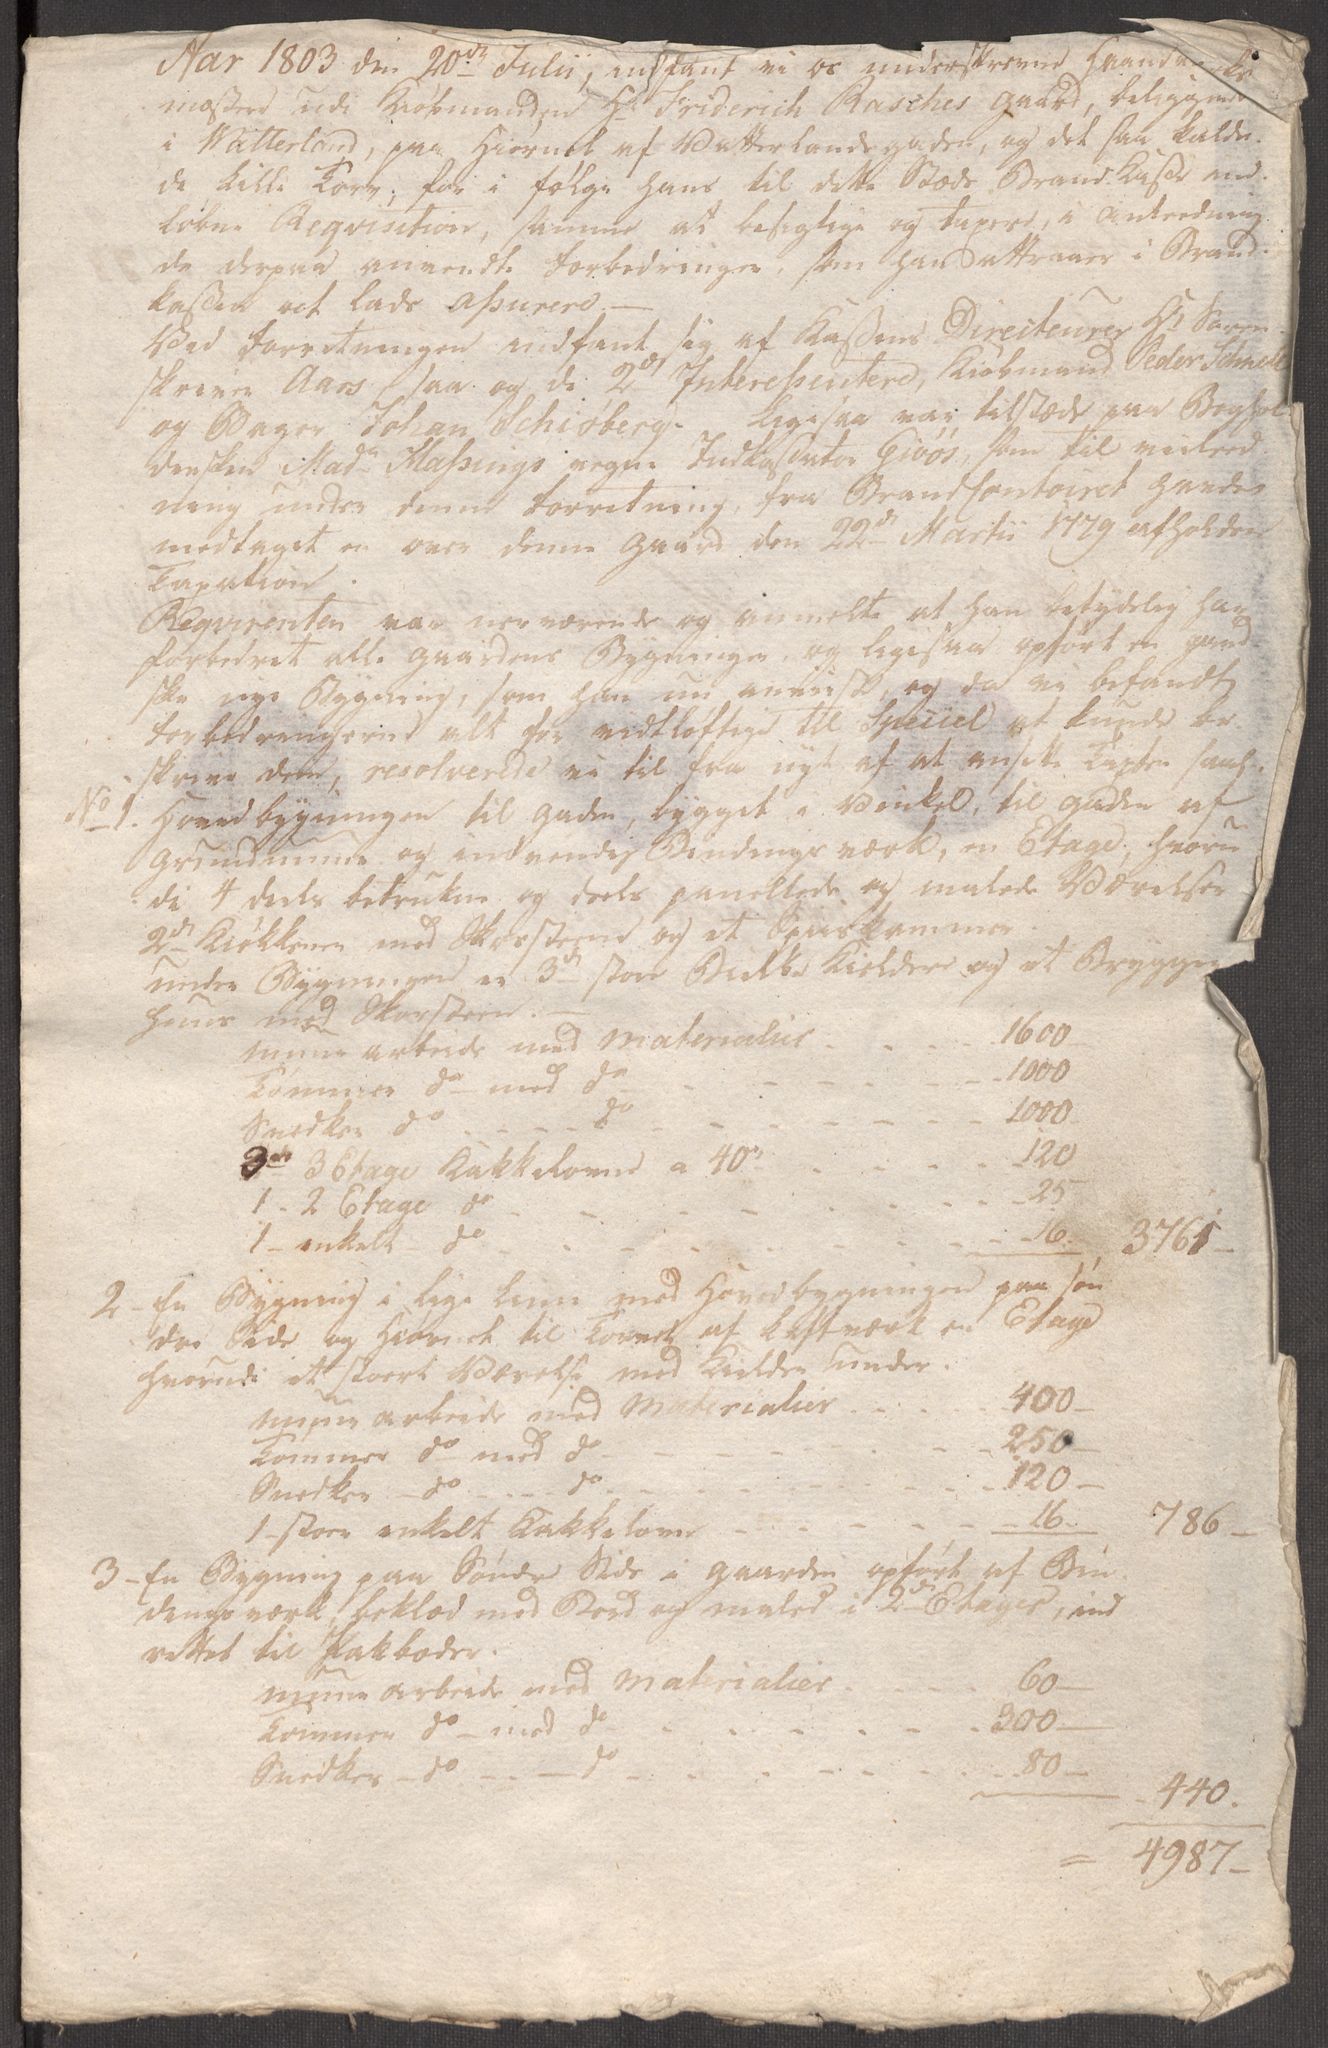 Aar 1803 den 20de Julii, indfant vi os underskrevne Haandverks
mæstere udi Kiøbmanden Hr Friderich Rasches gaard, beliggende
i Watterland, paa Hiørnet af Vatterlandsgaden, og det saa kalde-
de Lille Torv, for i følge hans til dette Stæds Brand Kasse ind-
løbne Reqvisition, samme at besigtige og taxere, i anledning
de derpaa anvendte forbedringer, som han attraaer i Brand-
kassen at lade assurere.—
Ved forretningen indfant sig af Kassens Directeurer Hr Soren-
skriver Aars saa og de 2de Interessentere, Kiøbmand Peder Schnell
og Bager Johan Schiøberg. Ligesaa var tilstæde paa Boghol-
derskens Madm Massings vegne Indkassator Giøøs, som til veiled-
ning under denne forretning, fra Brandcontoiret havde
medtaget en over denne Gaard den 22de Martii 1779 afholden
Taxation.
Reqvirenten var nerværende og anmelte at han betydelig har
forbedret alle gaardens Bygninger, og ligesaa opført en gand-
ske nye Bygning, som han nu anviiste, og da vi befandt
forbedringerne alt for vidtløftige til Speciel at kunde be-
skrive dem, resolverede vi til fra nyt af at ansette Taxten saal.
No 1. Hovedbygningen til gaden, bygget i Vinkel, til gaden af
Grundmuur og indvendig Bindings værk, en Etage, hvoru-
di 4 deels betrukne og deels panellede og malede Værelser
2de Kiøkkener med Skorsteene og et Spiiskammer.
under Bygningen er 3de store Bielke Kieldere og et Brygger
huus med Skorsteen.—
Muur arbeide med Materialier . . . . 1600
Tømmer do — med do - - - - - 1000
Snedker do - - - do - - - - - 1000
3de 3 Etage Kakkelovne a 40 rd . . . . 120
1 - 2 Etage do - - - - - 25
1 - enkelt - do - - - - - 16. 3761 —
2 - En Bygning i lige linie med Hovedbygningen paa søn-
dre Side og Hiørnet til Torvet af Laftværk en Etage
hvorudi et stoert Værelse med Kielder under.
Muur arbeide med Materialier . . . . 400 —
Tømmer do med do - - - - - 250 —
Snedker - do - - - do - - - - - 120 —
1 - stoer enkelt Kakkelovn - - - - - 16. 786 —
3 - En Bygning paa Søndre Side i gaarden opført af Bin-
dings værk, beklæd med Bord og malet i 2de Etager, ind-
rettet til Pakboder.
Muur arbeide med Materialier . . . . 60 —
Tømmer do — med do . . . . . 300 —
Snedker - do - - - do - - - - - 80 —
440.
= 4987 —